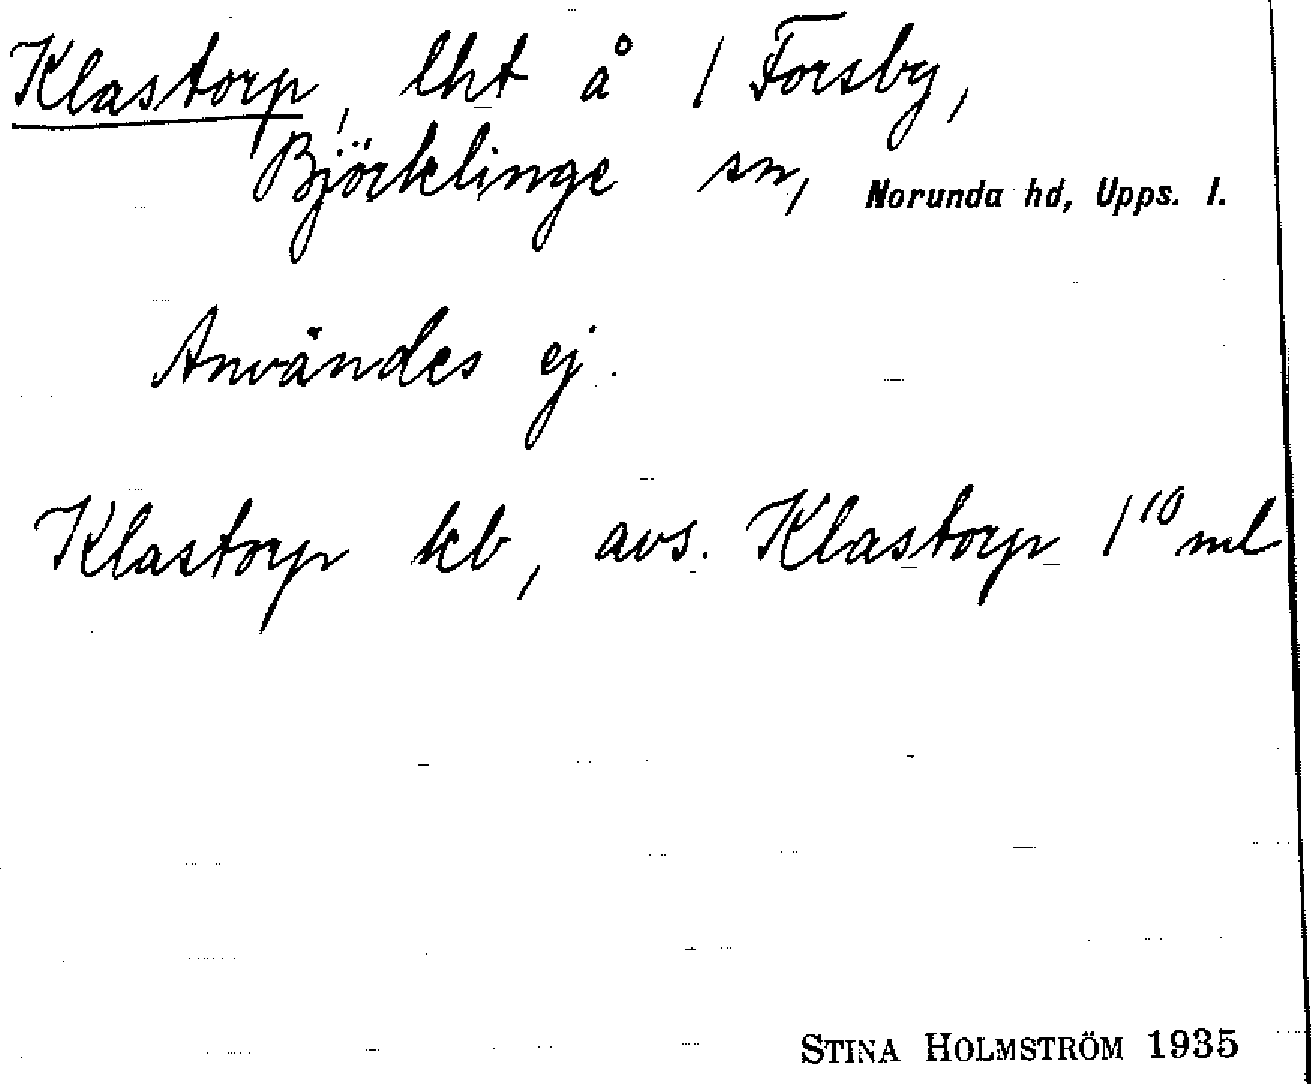 Klastorp, lht å 1 Forsby,
Björklinge sn, Norunda hd, Upps. l.
Användes ej.
Klastorp kb, avs. Klastorp 1¹⁰ ml
STINA HOLMSTRÖM 1935